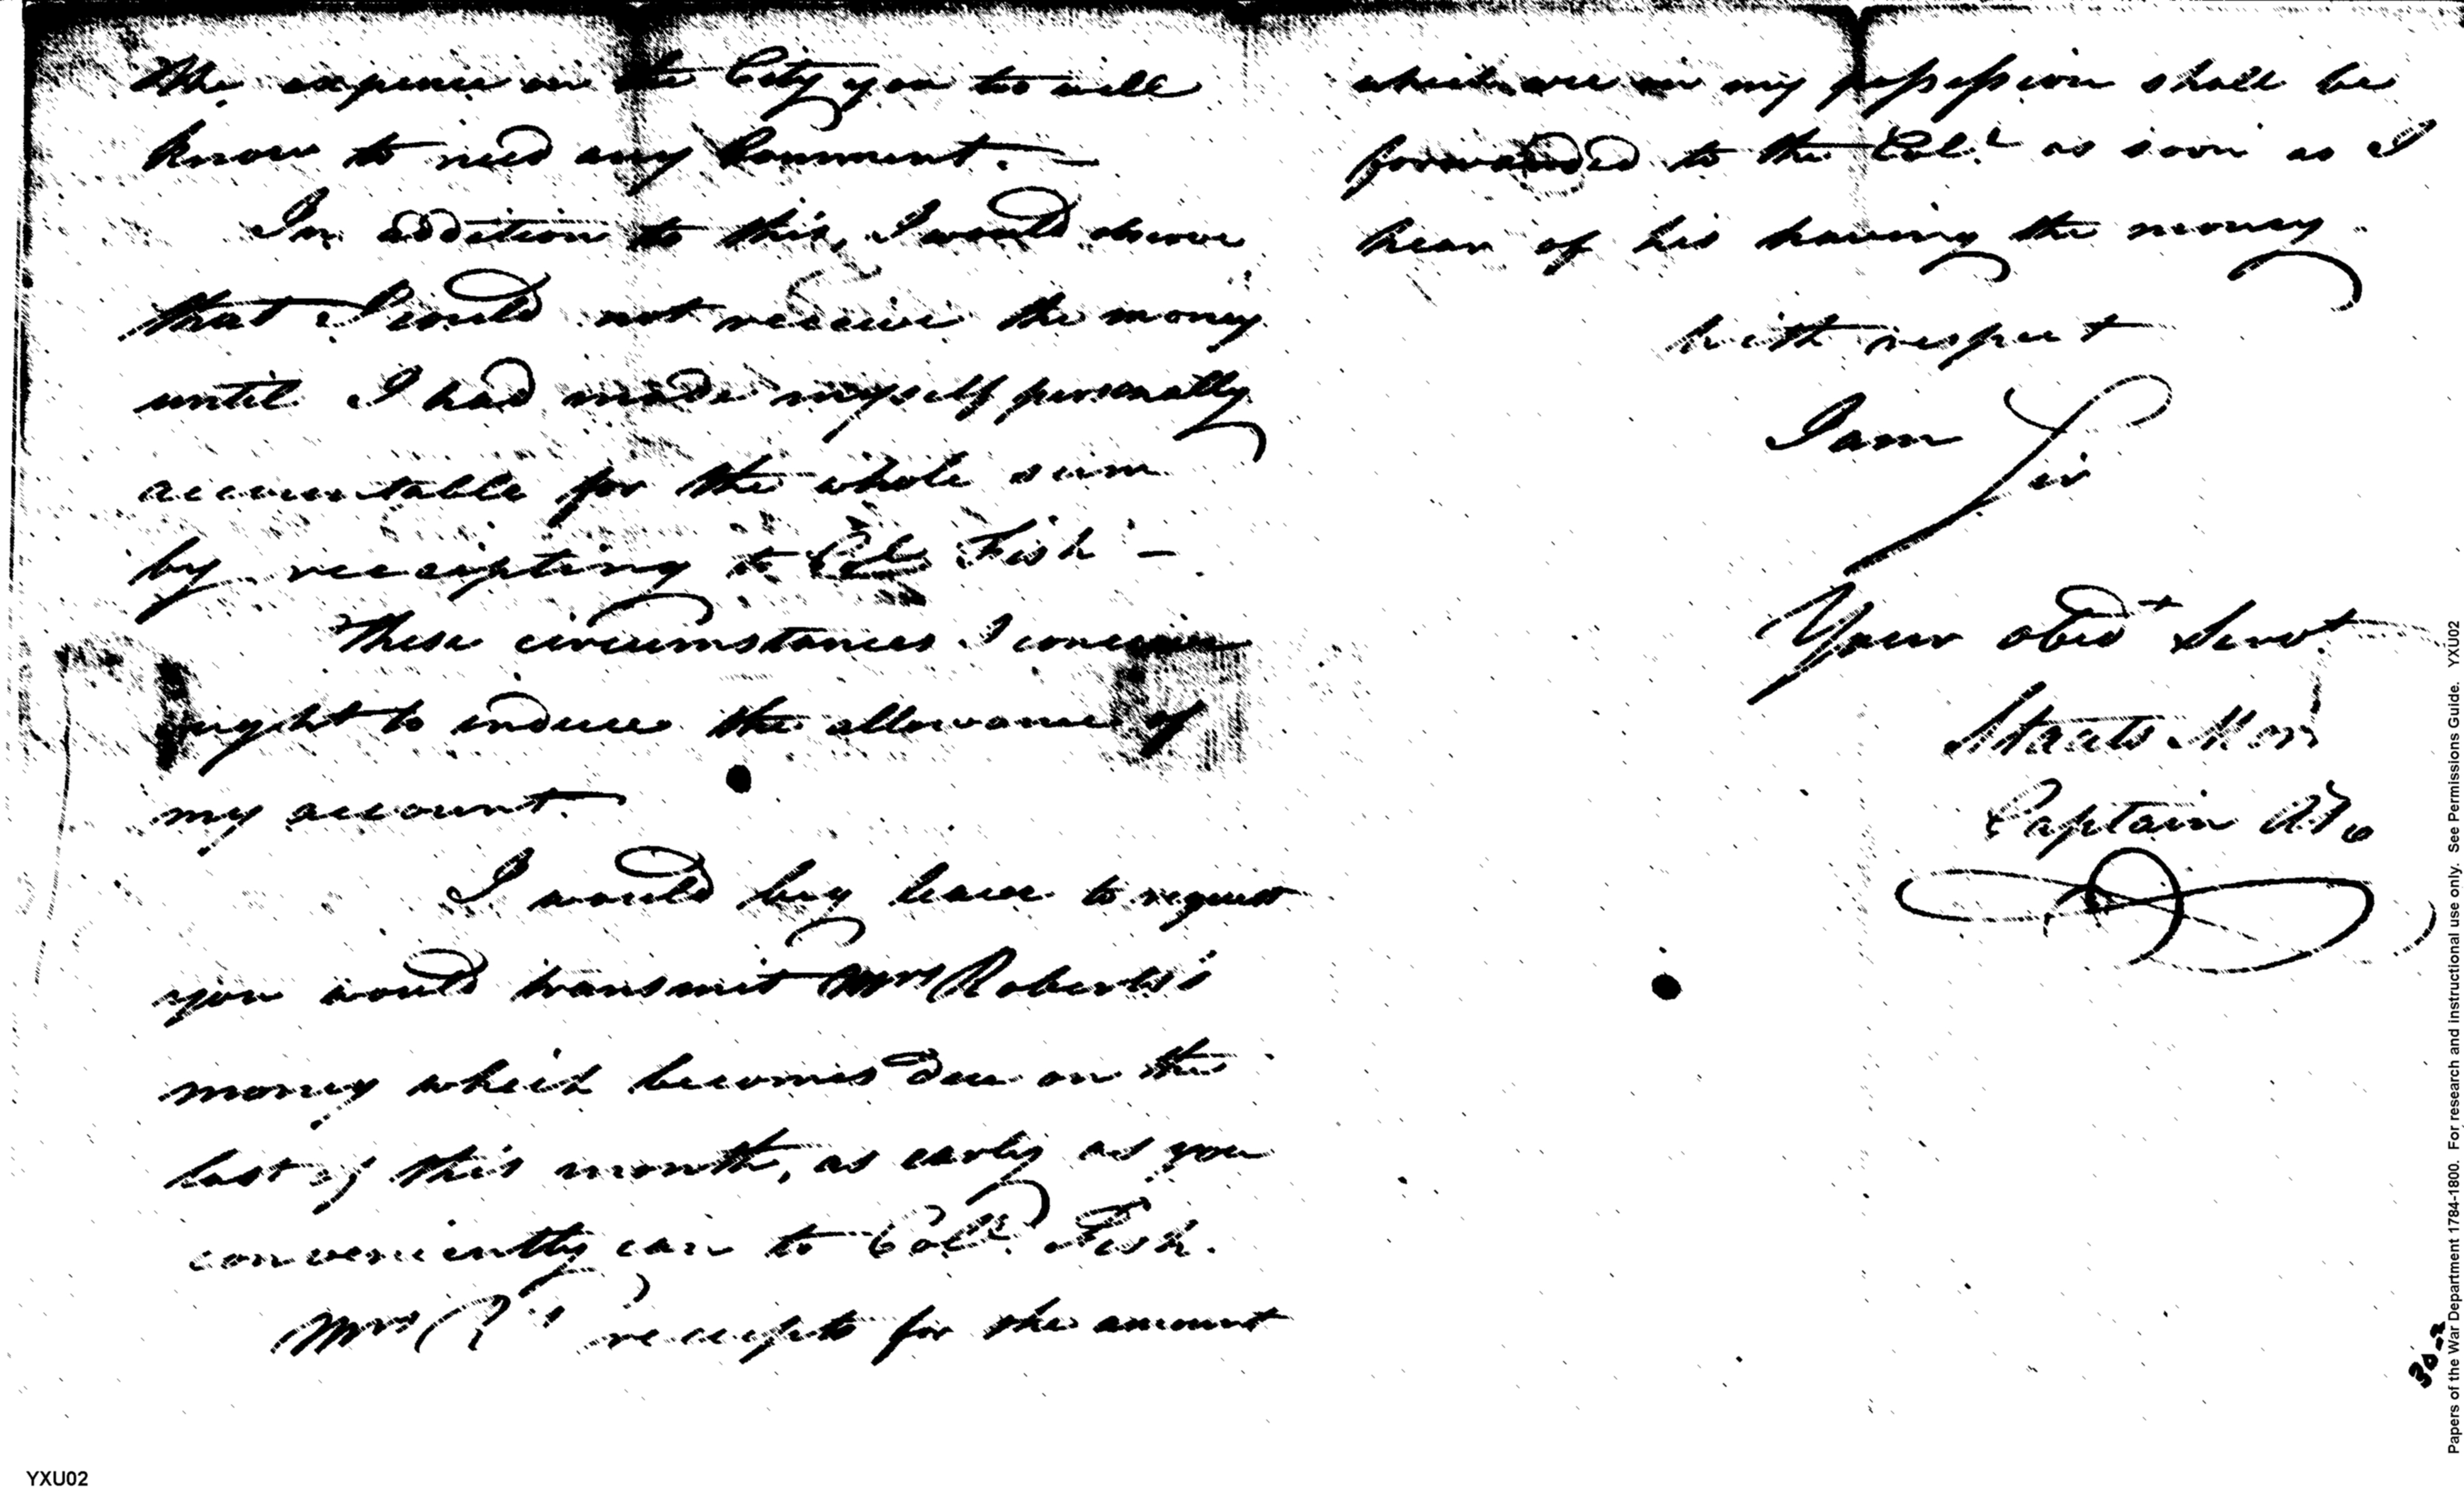 The expence in the City you too well
know to need any Comment. —
In addition to this, I would observe
that I could not receive the money
until I had made myself personally
accountable for the whole sum
by receipting to Col. Fish —
These circumstances I conceive
ought to induce the allowance of
my account.
I would beg leave to request
you would transmit Mrs Roberts's
money which becomes due on the
last of this month, as early as you
conveniently can to Col. Fish.
Mrs R's receipts for the amount
which are in my possession shall be
forwarded to the Col. as soon as I
hear of his having the money.
With respect
I am
Sir
Your obedt Servt
Staats Mor
Captain
30-2
YXU02
Papers of the War Department 1784-1800. For research and instructional use only. See Permissions Guide. YXU02